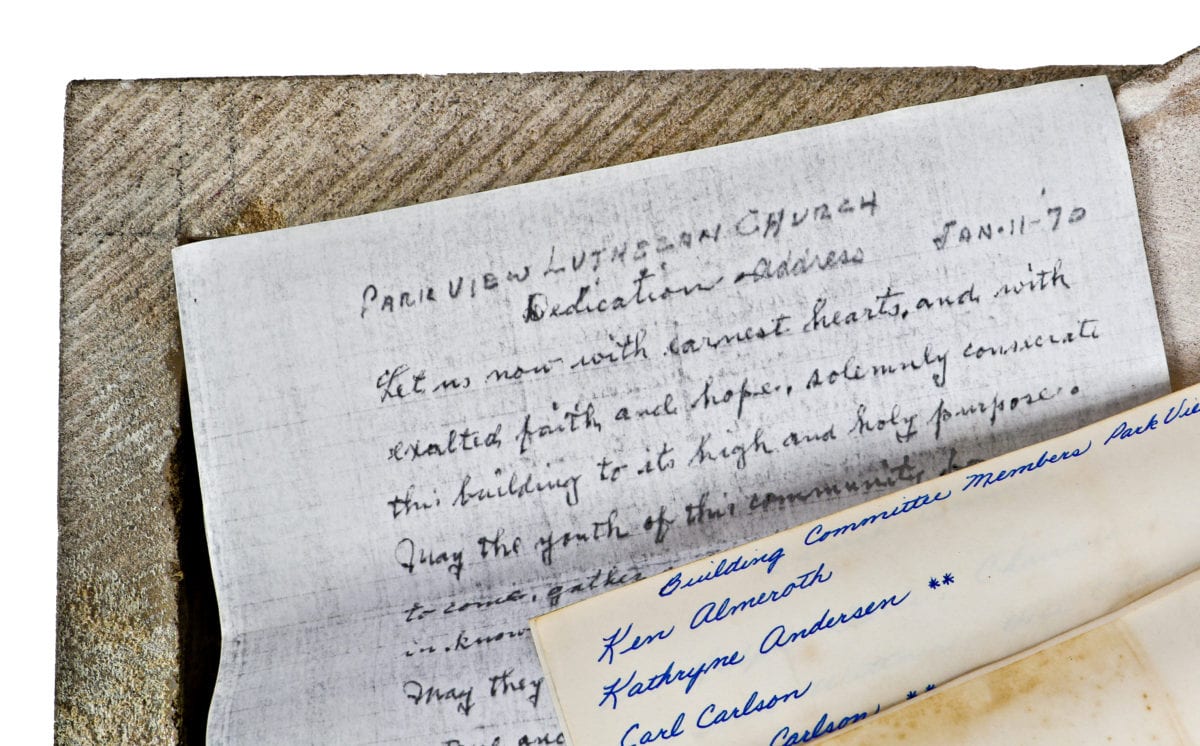 PARK VIEW LUTHERAN CHURCH
Dedication Address JAN·11-'70
Let us now with earnest hearts, and with
exalted faith and hope, solemnly consecrate
this building to its high and holy purpose.
May the youth of this community
to come, gather
in
May they
and
Building Committee Members Park
Ken Almeroth
Kathryne Andersen **
Carl Carlson
Carlson **